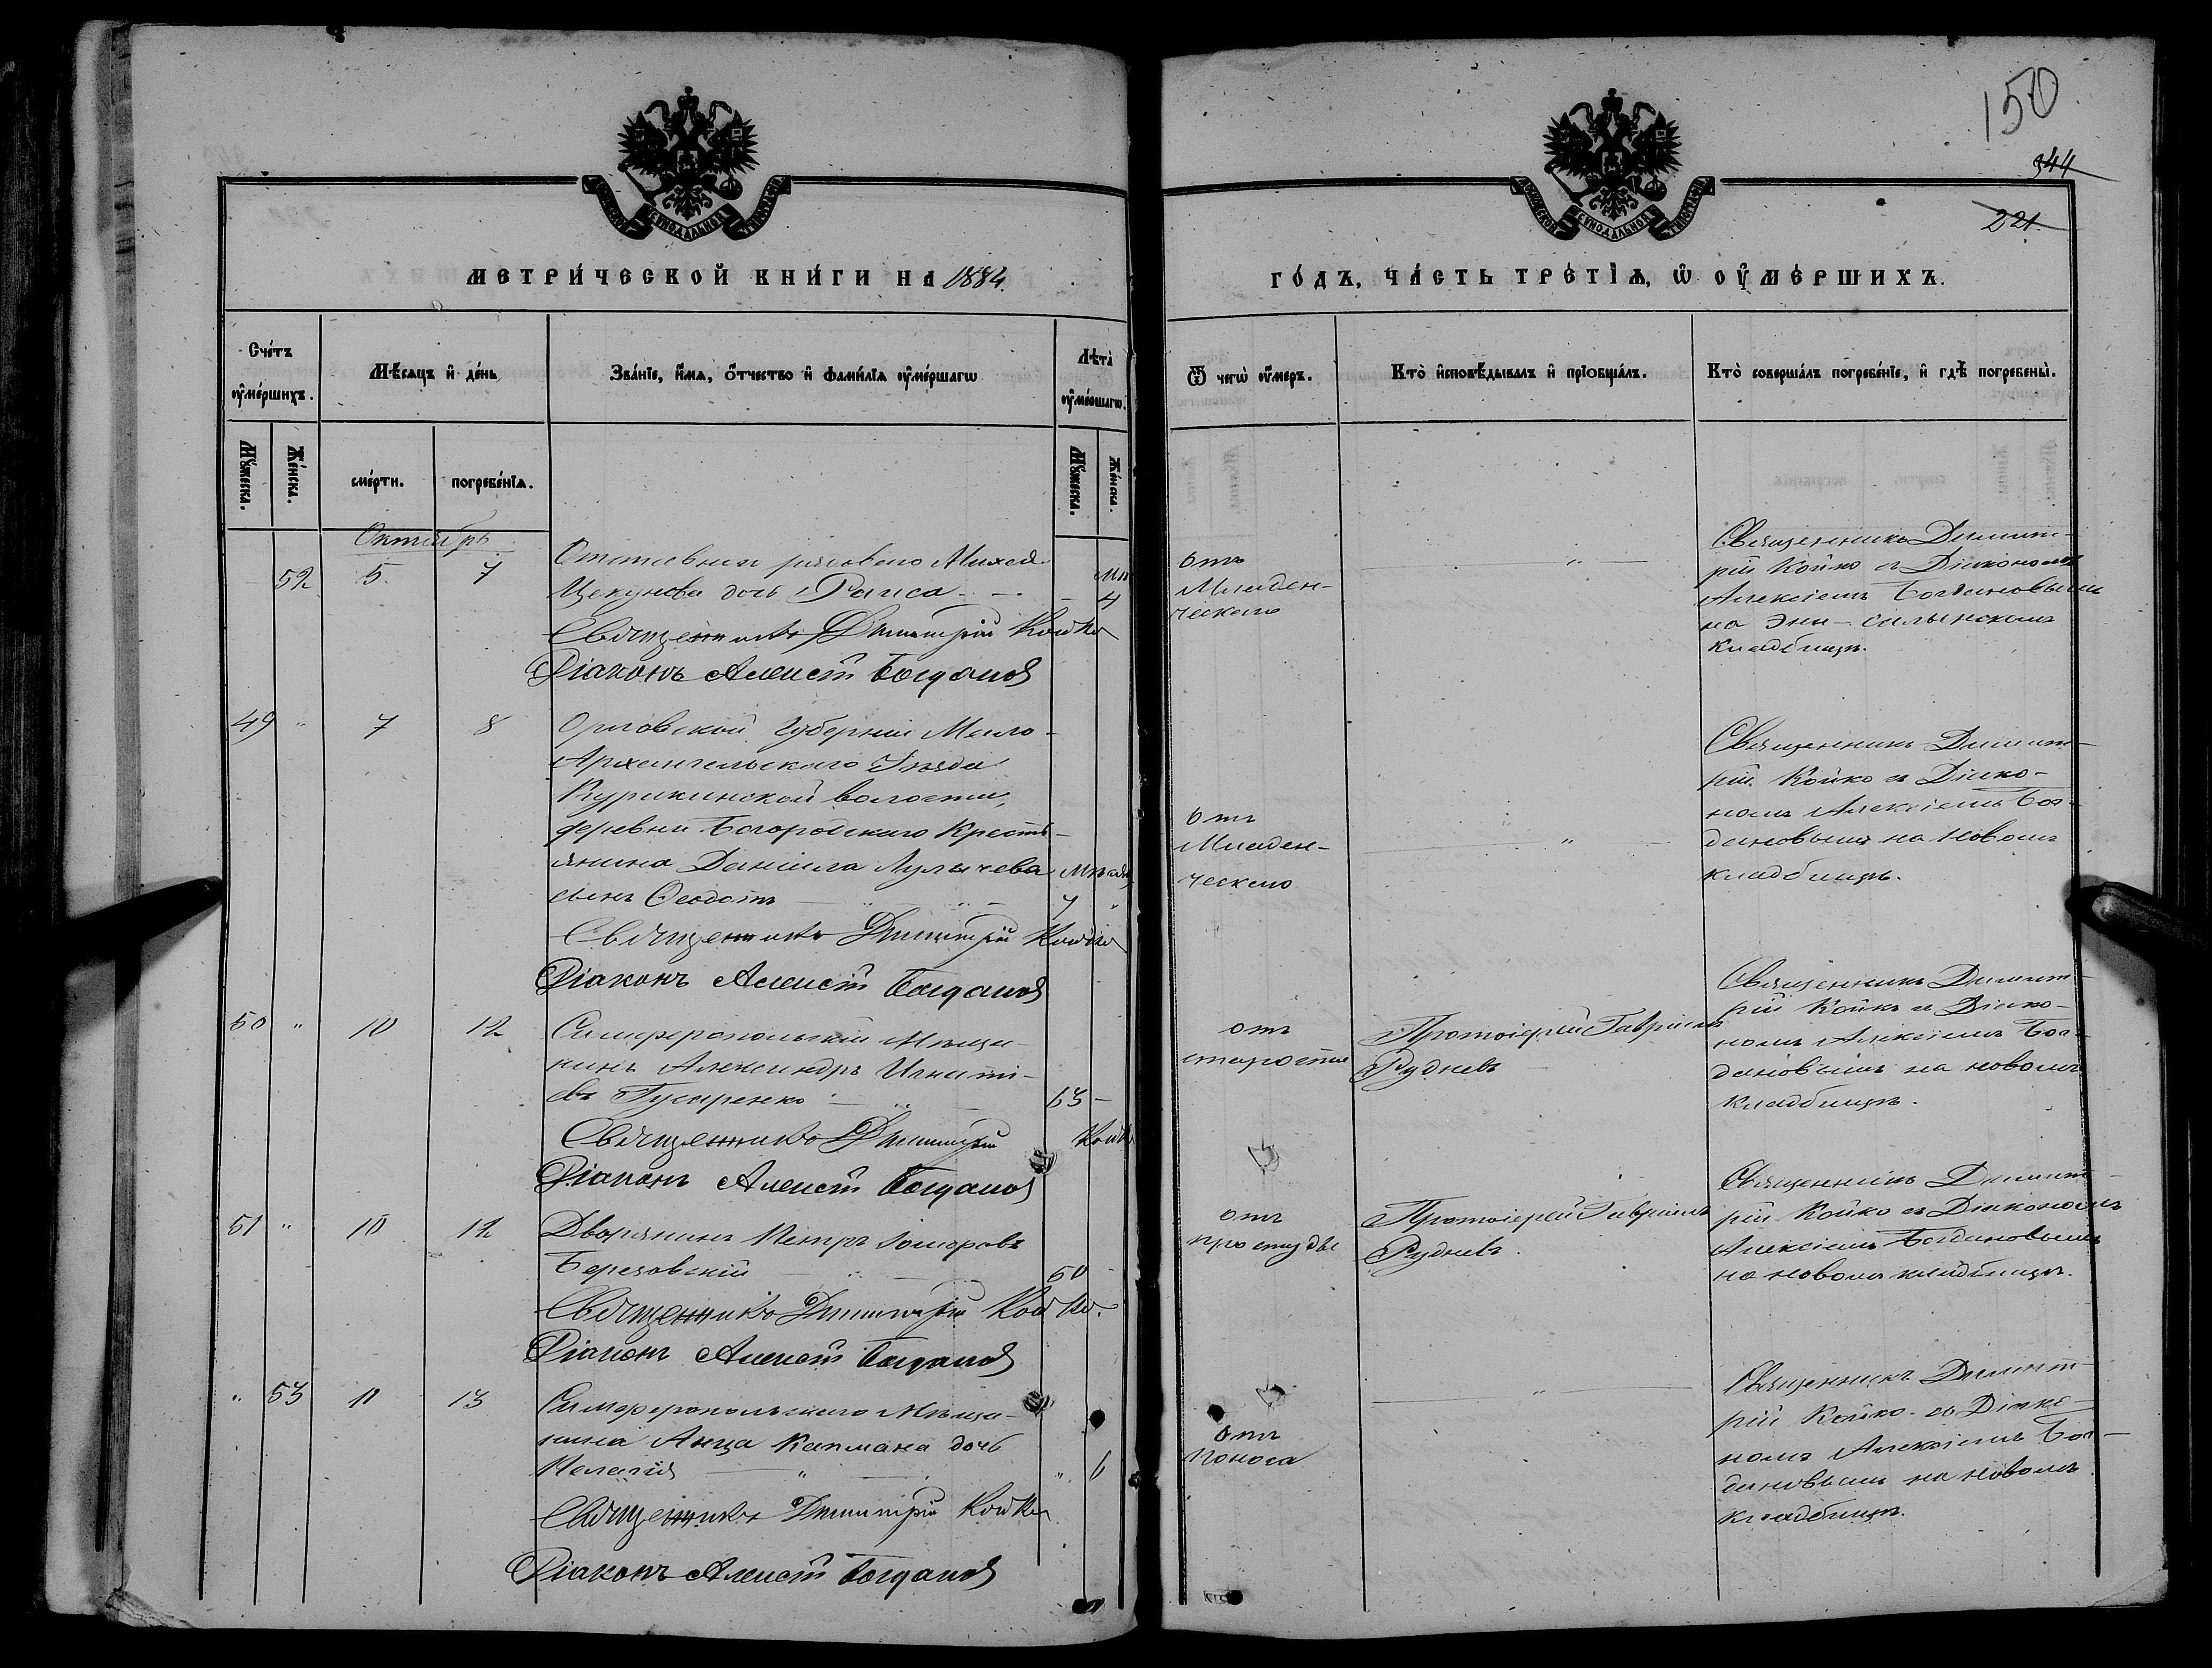 150
344
221.
МОСКОВСКОЙ СѴНОДАЛЬНОЙ ТИПОГРАФІИ
МОСКОВСКОЙ СѴНОДАЛЬНОЙ ТИПОГРАФІИ
МЕТРИ́ЧЕСКОЙ КНИ́ГИ НА 1884.
ГО́ДЪ, ЧА́СТЬ ТРЕ́ТІѦ, Ѡ҆ ОУ҆МЕ́РШИХЪ.
Сче́тъ оу҆ме́ршихъ.
Мѣ́сяцъ и҆ де́нь
Зва́нїе, и҆́мѧ, ѻ҆́тчество и҆ фами́лїѧ оу҆ме́ршагѡ
Лѣ́та оу҆ме́ршагѡ.
Ѿ чегѡ̀ оу҆́меръ.
Кто̀ и҆сповѣ́дывалъ и҆ прїѡбща́лъ.
Кто̀ соверша́лъ погребе́нїе, и҆ гдѣ̀ погребены̀.
Мꙋ́жеска.
Же́нска.
сме́рти.
погребе́нїѧ.
Мꙋ́жеска.
Же́нска.
Октябрь
52 5. 7
Отставнаго рядоваго Михея
Цекунова дочь Раиса
4
Священникъ Димитрій Койко
Діаконъ Алексій Богданов
отъ
Младен-
ческаго
Священникъ Димит-
рій Койко съ Діакономъ
Алексіемъ Богдановымъ
на Эни-салынскомъ
кладбищѣ.
49 " 7 8
Орловской Губерніи Мало-
Архангельскаго Уѣзда
Курикинской волости,
деревни Богородскаго Кресть-
янина Даніила Лулычева
сынъ Ѳеодотъ
7
Священникъ Димитрій Койко
Діаконъ Алексій Богданов
отъ
Младен-
ческаго
Священникъ Димит-
рій Койко съ Діако-
номъ Алексіемъ Бог-
дановымъ на новомъ
кладбищѣ.
50 " 10 12
Симферопольскій Мѣща-
нинъ Александръ Игнаті-
евъ Гусаренко
63
Священникъ Димитрій Койко
Діаконъ Алексій Богданов
отъ
старости
Протоіерей Гавріилъ
Рудневъ
Священникъ Димит-
рій Койко съ Діако-
номъ Алексіемъ Бог-
дановымъ на новомъ
кладбищѣ.
51 " 10 12
Дворянинъ Петръ
Березовскій
50
Священникъ Димитрій Койко.
Діаконъ Алексій Богданов
отъ
простуды
Протоіерей Гавріилъ
Рудневъ.
Священникъ Димит-
рій Койко съ Діакономъ
Алексіемъ Богдановымъ
на новомъ кладбищѣ.
" 53 11 13
Симферопольскаго Мѣща-
нина Анца Капмана дочь
Пелагія
" 6
Священникъ Димитрій Койко
Діаконъ Алексій Богданов
отъ
поноса
Священникъ Димит-
рій Койко съ Діако-
номъ Алексіемъ Бог-
дановымъ на новомъ
кладбищѣ.